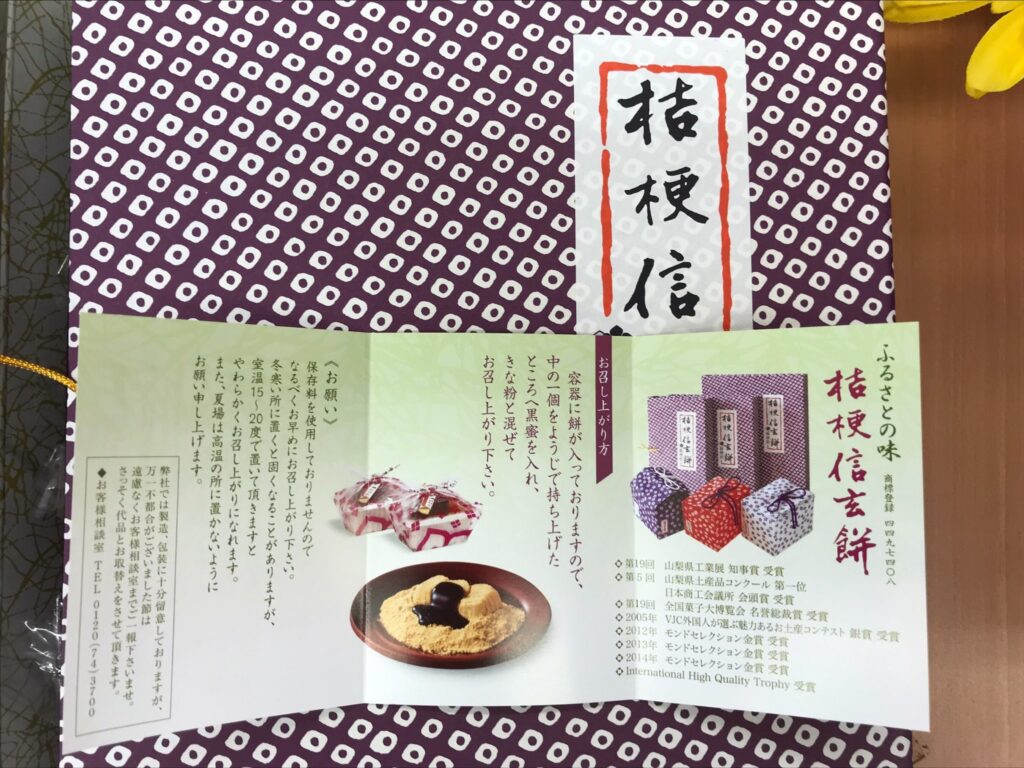 桔梗信
ふるさとの味
桔梗信玄餅
商標登録 四四九七四〇八
桔梗信玄餅
桔梗信玄餅
桔梗信玄餅
❖第19回 山梨県工業展 知事賞 受賞
❖第5回 山梨県土産品コンクール 第一位
日本商工会議所 会頭賞 受賞
❖第19回 全国菓子大博覧会 名誉総裁賞 受賞
❖2005年 VJC外国人が選ぶ魅力あるお土産コンテスト 銀賞 受賞
❖2012年 モンドセレクション金賞 受賞
❖2013年 モンドセレクション金賞 受賞
❖2014年 モンドセレクション金賞 受賞
❖International High Quality Trophy 受賞
お召し上がり方
容器に餅が入っておりますので、
中の一個をようじで持ち上げた
ところへ黒蜜を入れ、
きな粉と混ぜて
お召し上がり下さい。
《お願い》
保存料を使用しておりませんので
なるべくお早めにお召し上がり下さい。
冬寒い所に置くと固くなることがありますが、
室温15〜20度で置いて頂きますと
やわらかくお召し上がりになれます。
また、夏場は高温の所に置かないように
お願い申し上げます。
弊社では製造、包装に十分留意しておりますが、
万一不都合がございました節は
遠慮なくお客様相談室までご一報下さいませ。
さっそく代品とお取替えをさせて頂きます。
◆お客様相談室 TEL 0120(74)3700